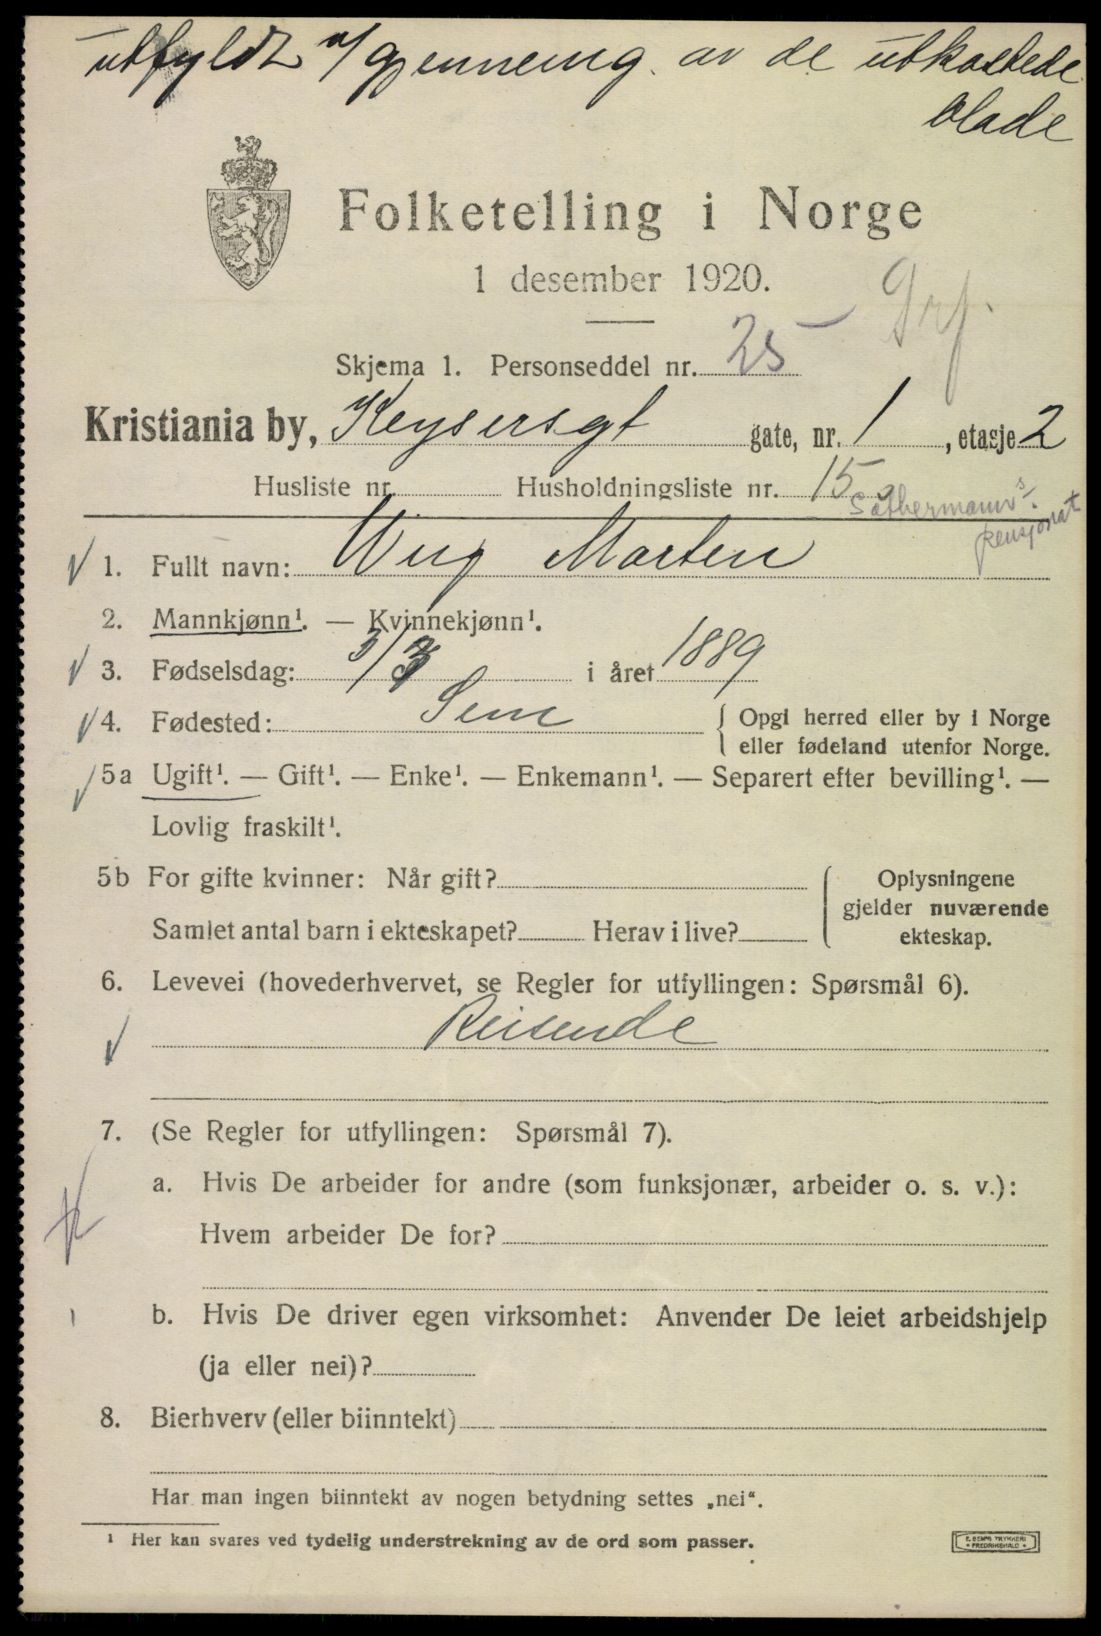 utfyldt v/gjennemg. av de utkastede
blade
Folketelling i Norge
1 desember 1920.
Skjema 1. Personseddel nr. 25
Kristiania by, Keysersgt gate, nr. 1, etasje 2
Husliste nr. Husholdningsliste nr. 15
pensjonat
1. Fullt navn: Wiig Morten
2. Mannkjønn¹. — Kvinnekjønn¹.
3. Fødselsdag: 3/3 i året 1889
4. Fødested: Sem { Opgi herred eller by i Norge
eller fødeland utenfor Norge.
5a Ugift¹. — Gift¹. — Enke¹. — Enkemann¹. — Separert efter bevilling¹. —
Lovlig fraskilt¹.
5b For gifte kvinner: Når gift? { Oplysningene
gjelder nuværende
Samlet antal barn i ekteskapet? Herav i live?
ekteskap.
6. Levevei (hovederhvervet, se Regler for utfyllingen: Spørsmål 6).
Reisende
7. (Se Regler for utfyllingen: Spørsmål 7).
a. Hvis De arbeider for andre (som funksjonær, arbeider o. s. v.):
Hvem arbeider De for?
b. Hvis De driver egen virksomhet: Anvender De leiet arbeidshjelp
(ja eller nei)?
8. Bierhverv (eller biinntekt)
Har man ingen biinntekt av nogen betydning settes „nei“.
¹ Her kan svares ved tydelig understrekning av de ord som passer.
FREDRIKSHALD